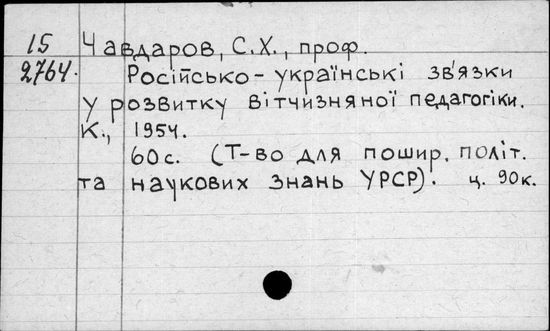 15 Чавдаров, С.Х., проф.
2764. Російсько-українські зв'язки
у розвитку вітчизняної педагогіки.
К., 1954.
60с. (Т-во для пошир. політ.
та наукових знань УРСР). ц. 90к.